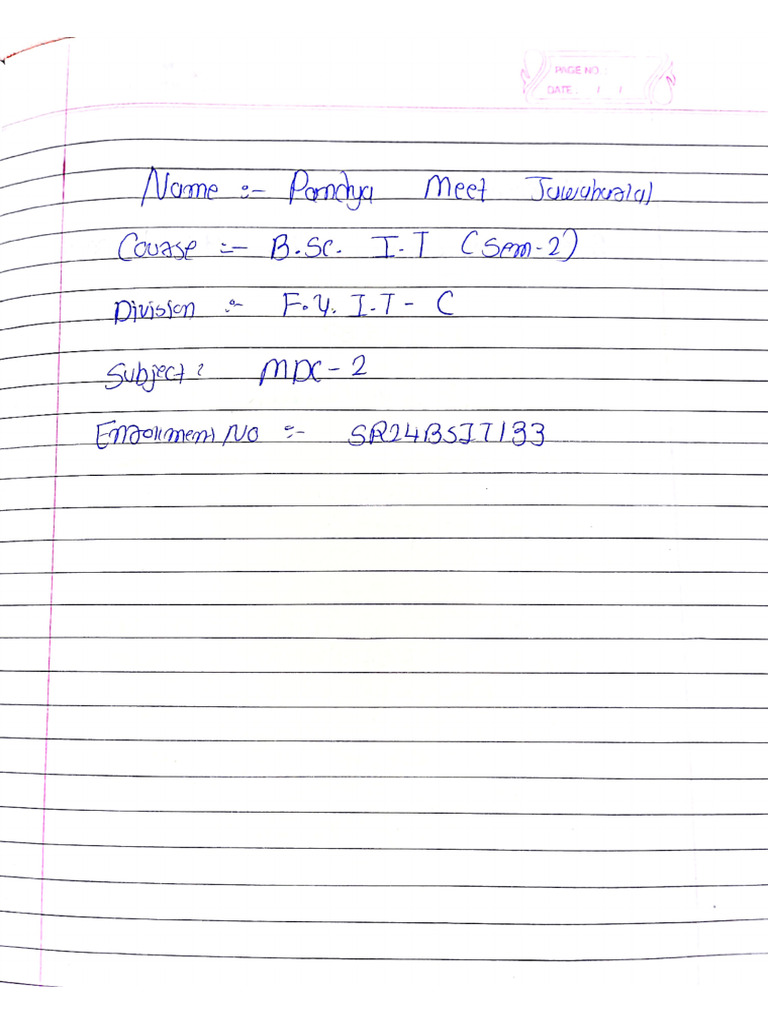 PAGE NO. :
DATE : / /
Name :- Pandya Meet Jawaharlal
Course :- B.Sc. I.T (Sem-2)
Division :- F.Y. I.T - C
Subject : MDC - 2
Enrollment No :- SR24BSIT133